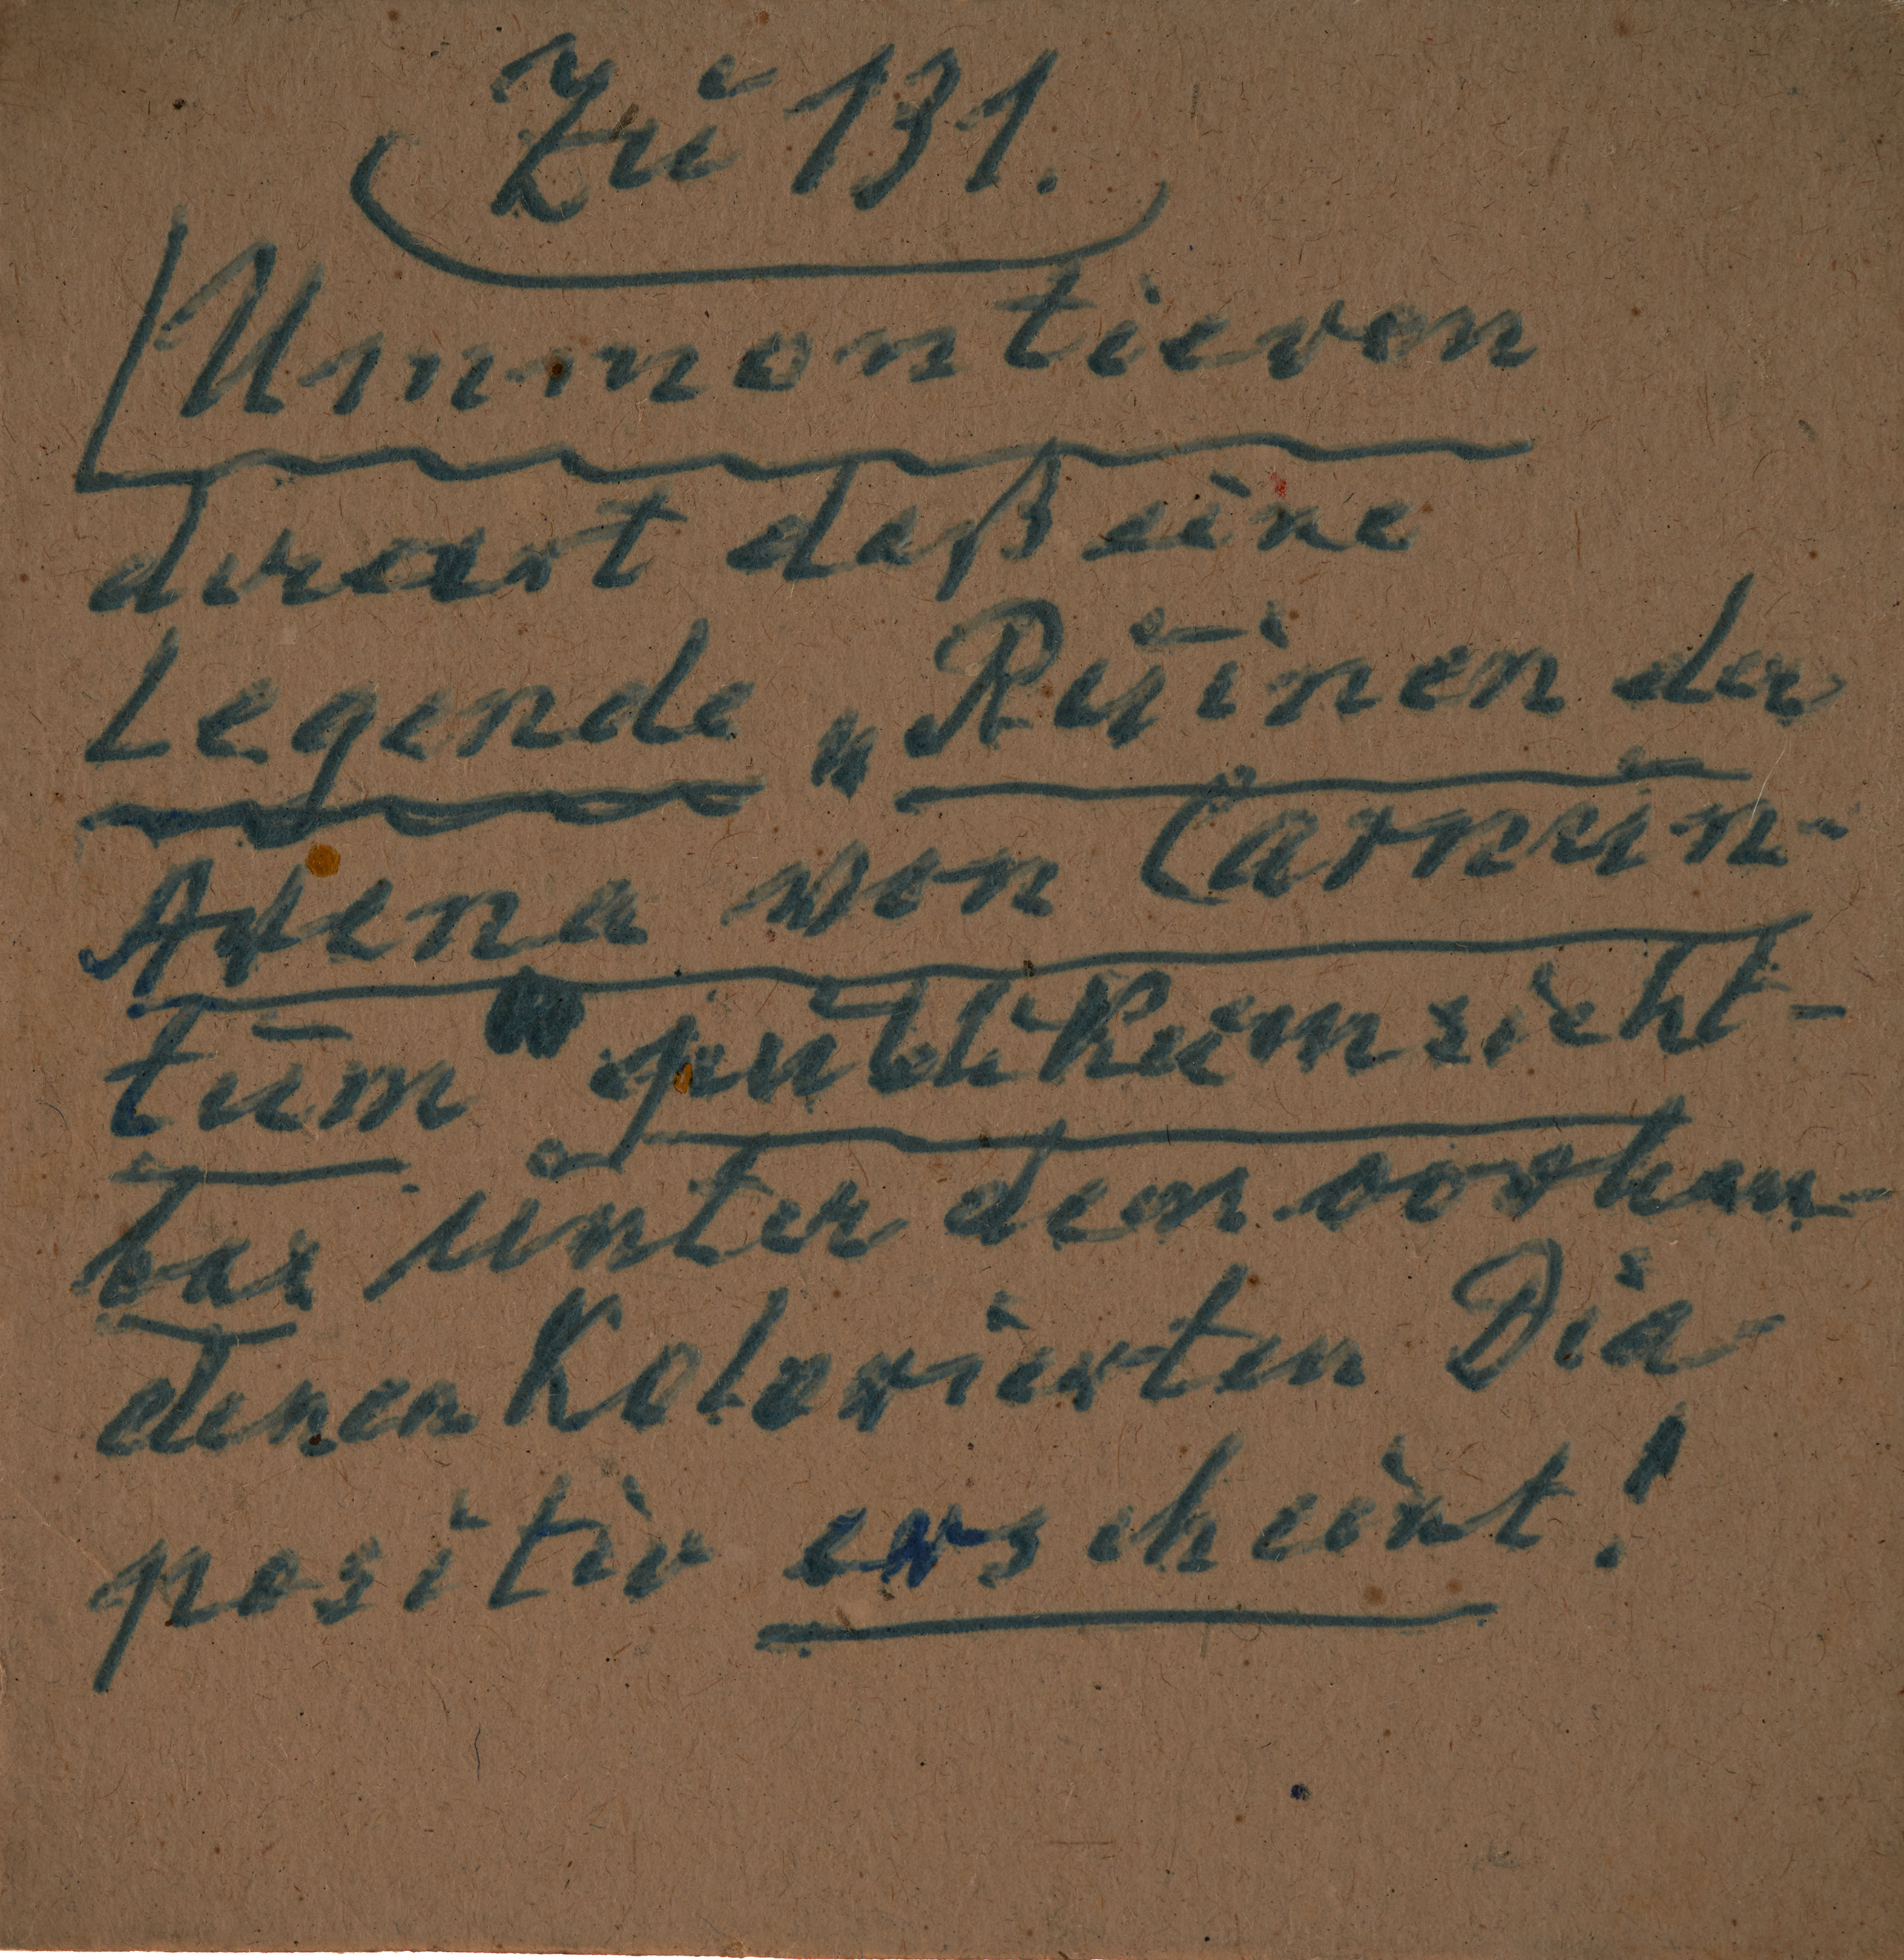 Zu 131.
Ummontieren
derart daß eine
Legende „Ruinen der
Arena von Carnun-
tum" publikumsicht-
bar unter dem vorhan-
denen Kolorierten Dia-
positiv erscheint!